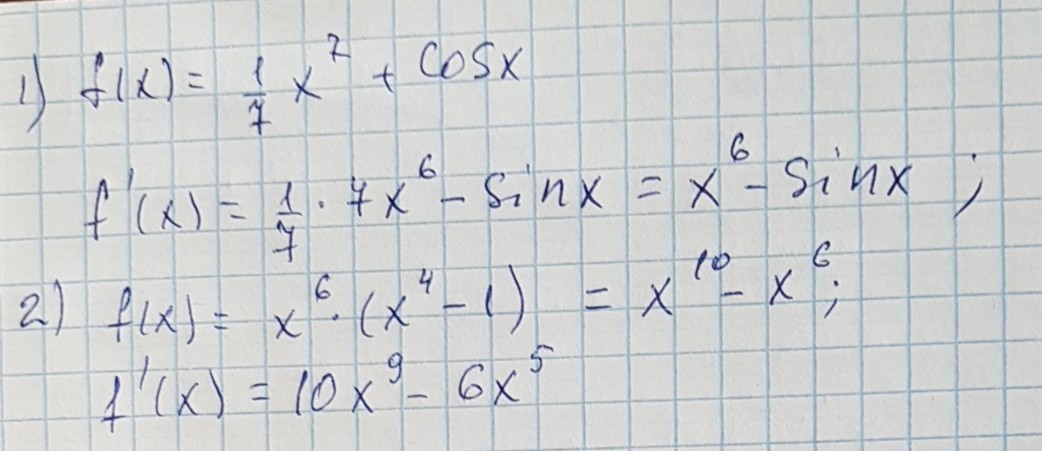 1) f(x) = 1/7 x⁷ + cosx
f'(x) = 1/7 · 7x⁶ - sinx = x⁶ - sinx ;
2) f(x) = x⁶ · (x⁴ - 1) = x¹⁰ - x⁶ ;
f'(x) = 10x⁹ - 6x⁵